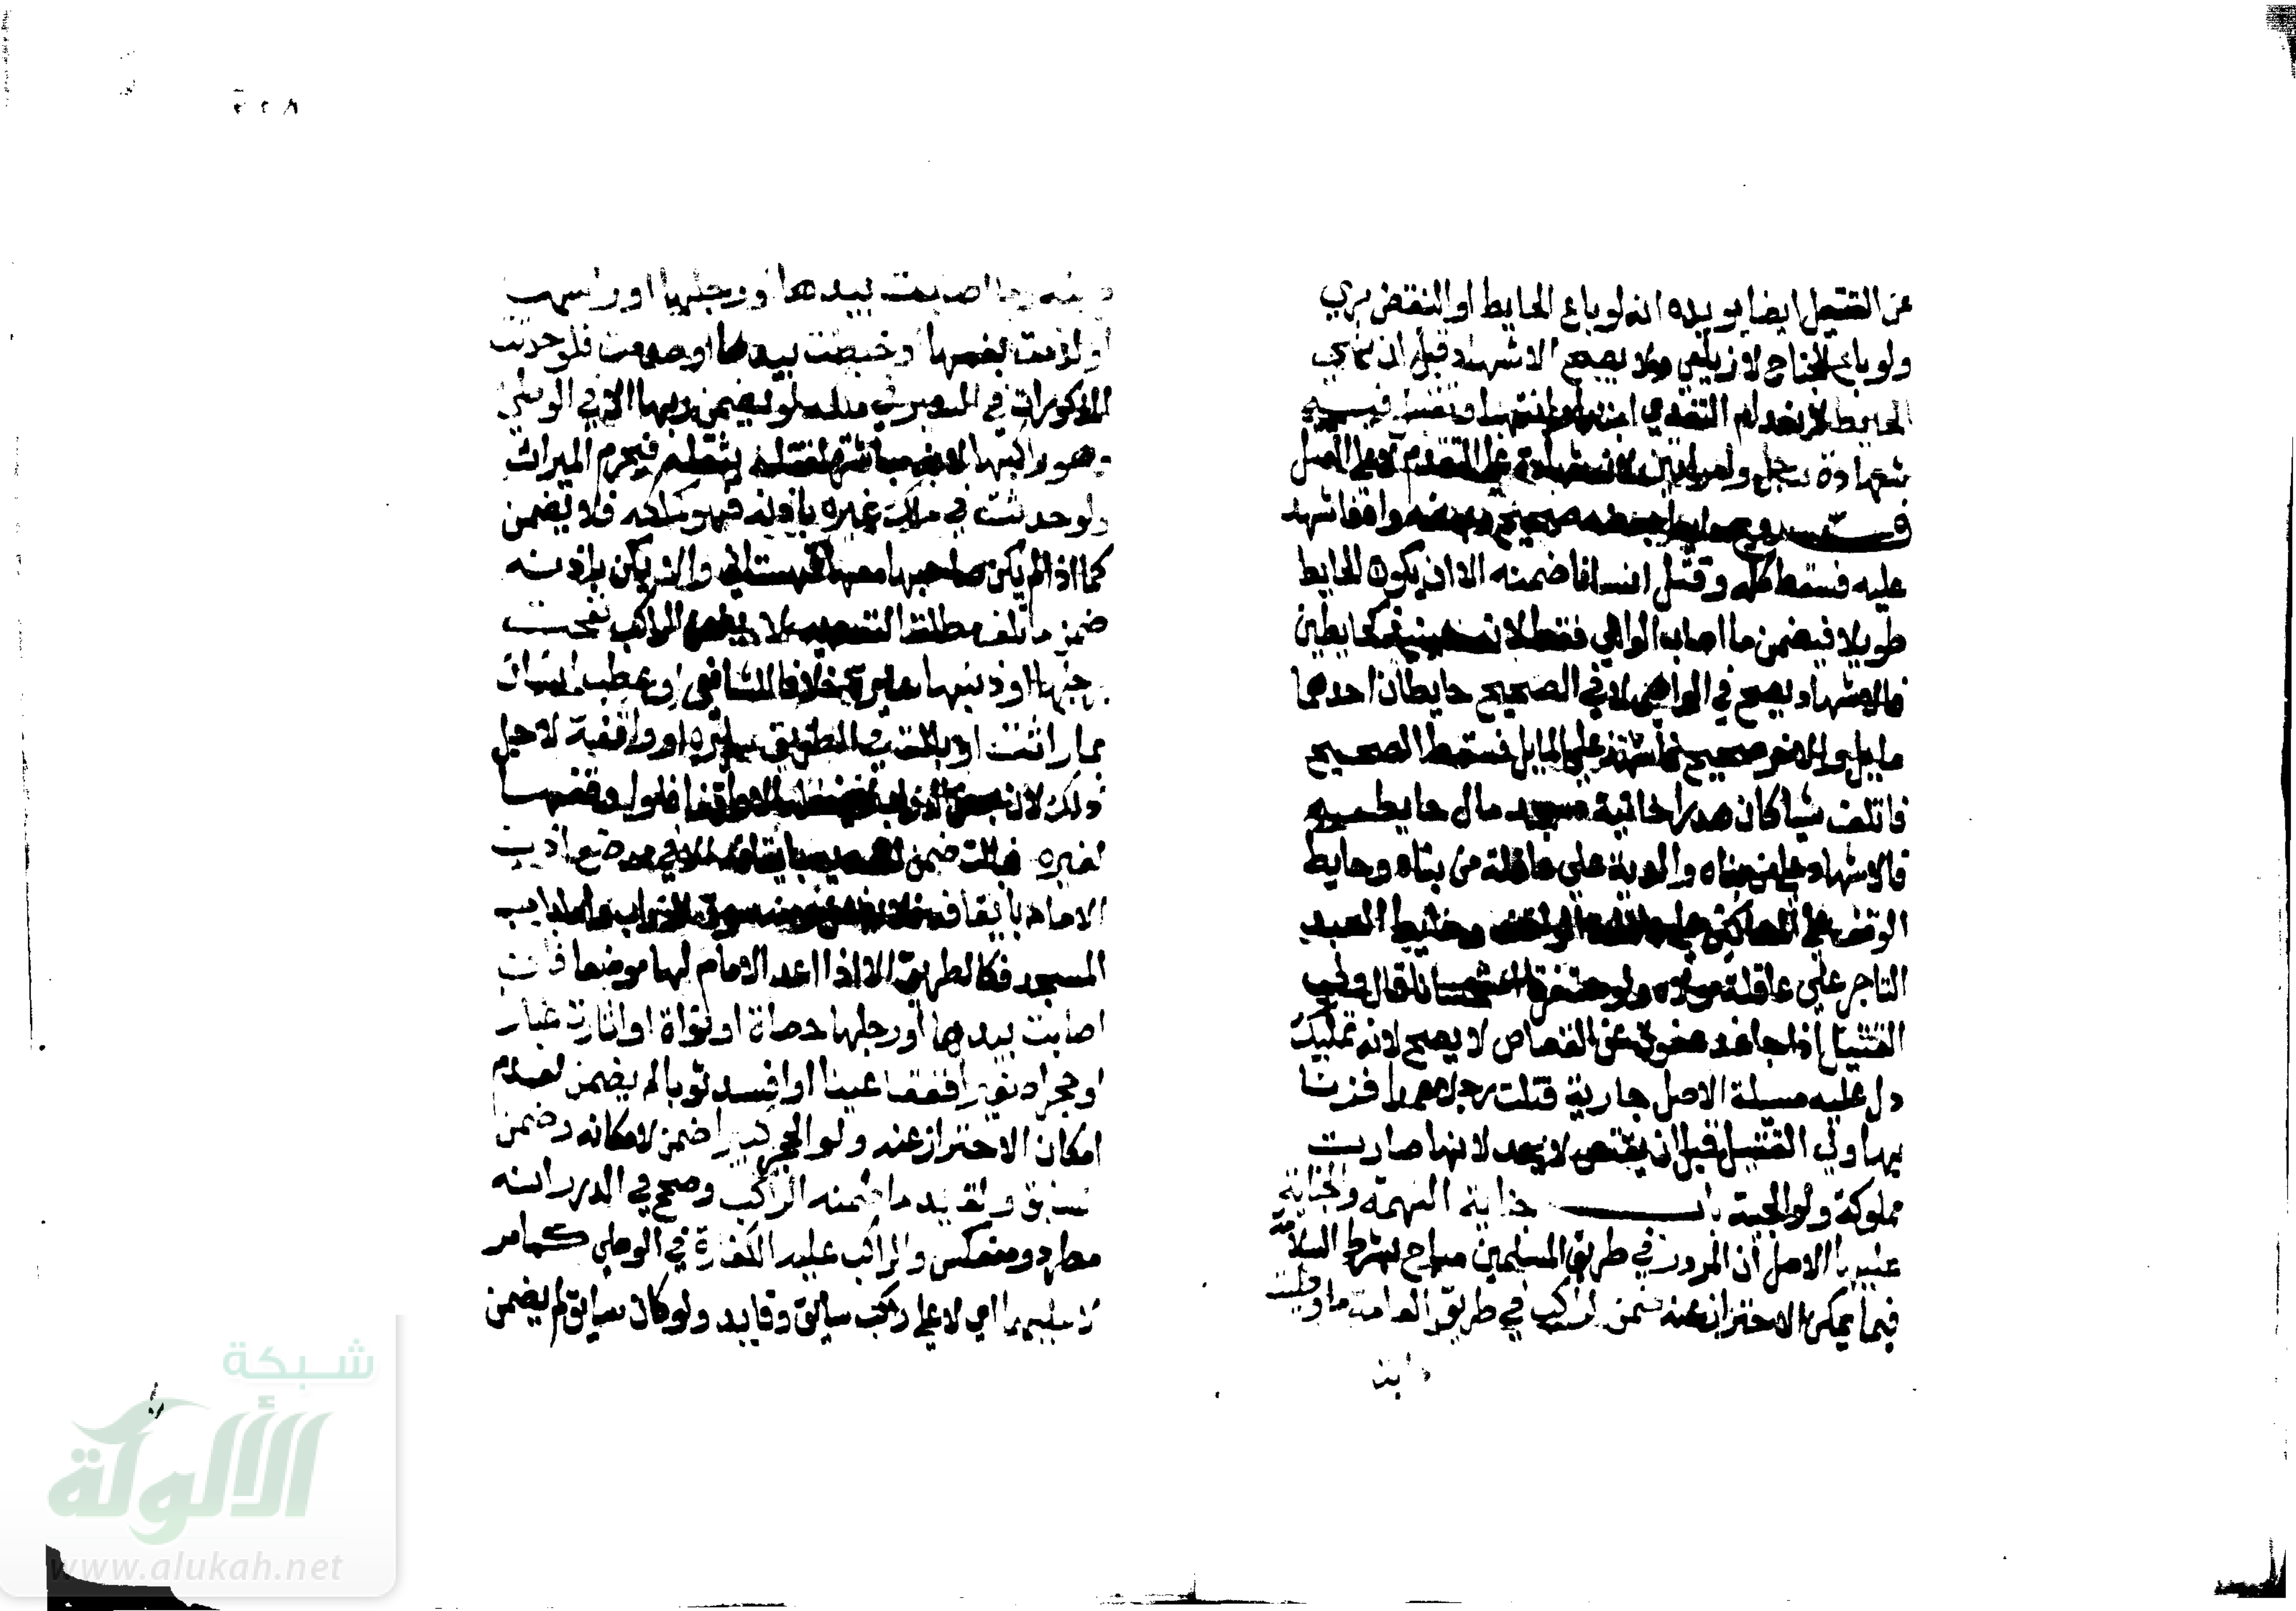 عن القتيل ايضا يويده انه لو باع الحايط او النقض بري
ولو باع الجناح لا زيلعي ولا يصح الاشهاد قبل ان يهي
الحايط لانعدام التعدي ابتداء وانتهاء وتقبل فيه
شهادة رجل وامراتين لانه شهادة على التقدم لا على القتل
فروع حايط بعضه صحيح وبعضه واه فاشهد
عليه فسقط كله وقتل انسانا ضمنه الا ان يكون الحايط
طويلا فيضمن ما اصاب الواهي فقط لانه حينيذ كحايطين
فالاشهاد يصح في الواهي لا في الصحيح حايطان احدهما
مايل والاخر صحيح فاشهد على المايل فسقط الصحيح
فاتلف شيا كان هدرا خانية مسجد مال حايطه
فالاشهاد على من بناه والدية على عاقلة من بناه وحايط
الوقف على المساكين على عاقلة الواقف وحايط العبد
التاجر على عاقلة مولاه ولو مستغرقا استحسانا قال ولي
القتيل اذا جا غد عفوت عن القصاص لا يصح لانه تمليك
دل عليه مسيلة الاصل جارية قتلت رجلا عمدا فزنا
بها ولي القتيل قبل ان يقتص لا يحد لانها صارت
مملوكة ولوالجية باب جناية البهيمة والجناية
عليها الاصل ان المرور في طريق المسلمين مباح بشرط السلامة
فيما يمكن الاحتراز عنه ضمن الراكب في طريق العامة ما وطيت
دابته
دابته وما اصابت بيدها او رجلها او راسها
او كدمت بفمها او خبطت بيدها او صدمت فلو حدثت
المذكورات في السير في ملكه لم يضمن ربها الا في الوطئ
وهو راكبها لانه مباشر لقتله بثقله فيحرم الميراث
ولو حدثت في ملك غيره باذنه فهو كملكه فلا يضمن
كما اذا لم يكن صاحبها معها قهستاني والا يكن باذنه
ضمن ما تلف مطلقا لتعديه لا يضمن الراكب نفحت
برجلها او ذنبها سايرة خلافا للشافعي او عطب انسان
بما راثت او بالت في الطريق سايرة او واقفة لاجل
ذلك لان بعض الدواب لا يفعله الا واقفا فلو اوقفها
لغيره فبالت ضمن لتعديه بايقافه الا في موضع اذن
الامام بايقافها فلا يضمن ومنه سوق الدواب واما باب
المسجد فكالطريق الا اذا اعد الامام لها موضعا فان
اصابت بيدها او رجلها حصاة او نواة او اثارت غبارا
او حجرا صغيرا ففقا عينا او افسد ثوبا لم يضمن لعدم
امكان الاحتراز عنه ولو الحجر كبيرا ضمن لامكانه وضمن
سايق وقايد ما ضمنه الراكب وصحح في الدرر انه
مطرد ومنعكس والراكب عليه الكفارة في الوطئ كما مر
لا عليهما اي لا على راكب سايق وقايد ولو كان سايق لم يضمن
شبكة
الألوكة
www.alukah.net